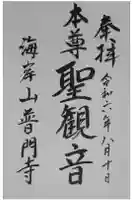 奉拝
令和六年八月十日
本尊
聖観音
海岸山普門寺